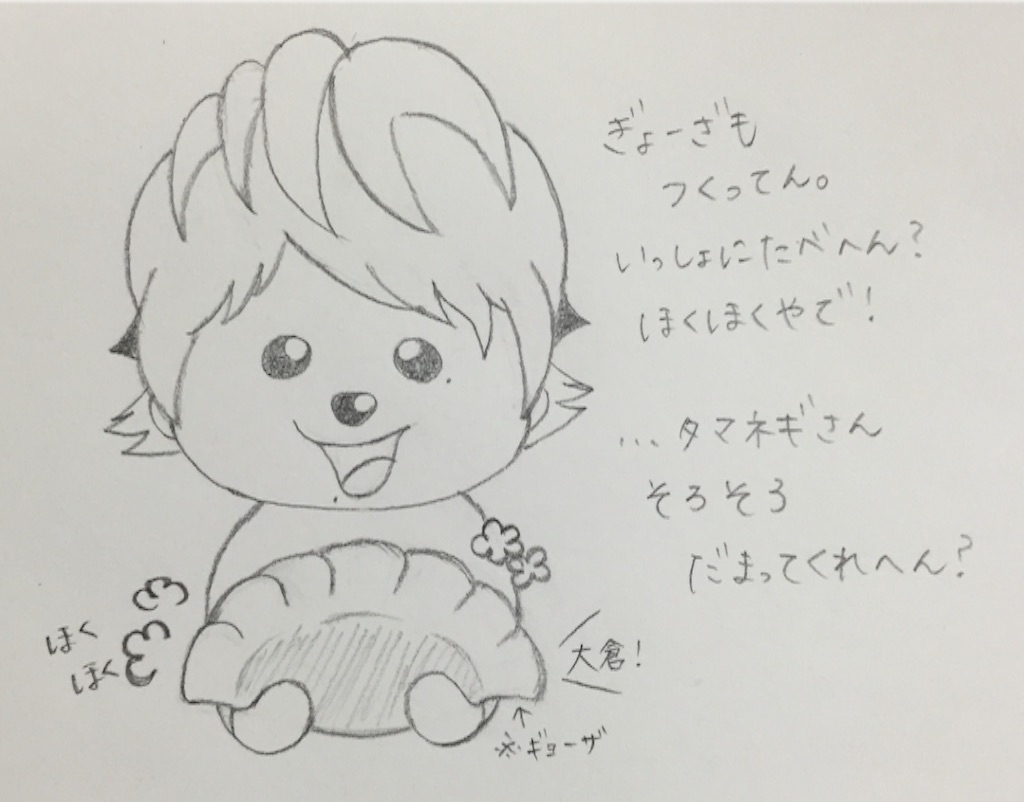 ぎょーざも
つくってん。
いっしょにたべへん?
ほくほくやで!
...タマネギさん
そろそろ
だまってくれへん?
ほく
ほく
大倉!
↑
※ギョーザ